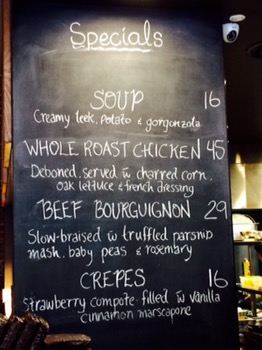 Specials
SOUP 16
Creamy leek, potato & gorgonzola
WHOLE ROAST CHICKEN 45
Deboned, served w charred corn,
oak lettuce & french dressing
BEEF BOURGUIGNON 29
Slow-braised w truffled parsnip
mash, baby peas & rosemary
CREPES 16
Strawberry compote filled w vanilla
cinnamon marscapone